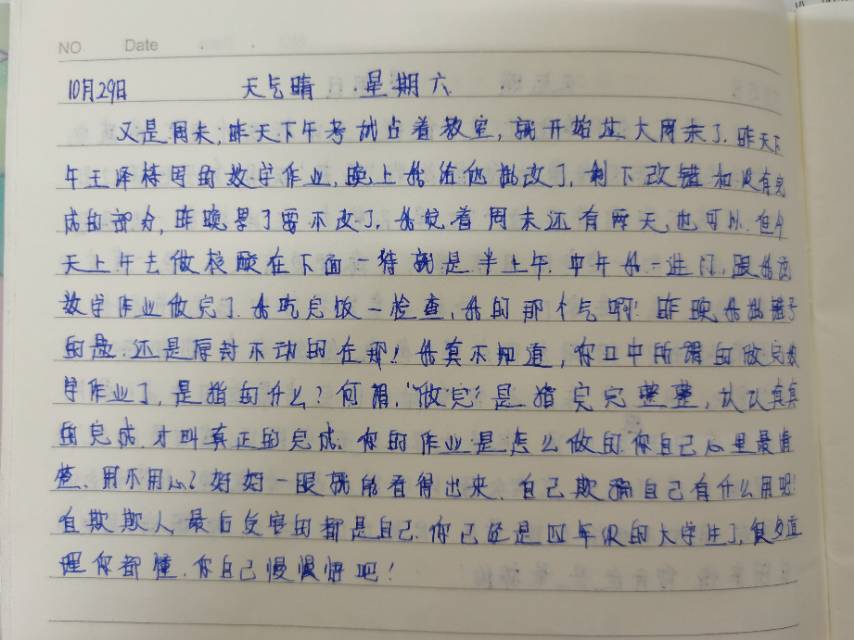 NO Date
10月29日 天气晴 星期六
又是周末,昨天下午考试占着教室,就开始过大周末了.昨天下
午王泽 的数学作业,晚上我给他批改了,剩下改错和没有完
成的部分,昨晚累了要不改了.我说着周末还有两天,也可以.但今
天上午去做核酸在下面一等就是半上午.中午我一进门,跟我说
数学作业做完了.我吃完饭一检查,我的那个气啊!昨晚我批
的是.还是原封不动的在那!我真不知道,你口中所谓的做完数
学作业了,是指的什么?何谓,“做完?是指完完整整,认认真真
的完成.才叫真正的完成.你的作业是怎么做的.你自己心里最清
楚、用不用心?好好一眼就能看得出来.自己欺骗自己有什么用呢?
自欺欺人最后受害的都是自己.你已经是四年级的大学生了,很多道
理你都懂.你自己慢慢悟吧!